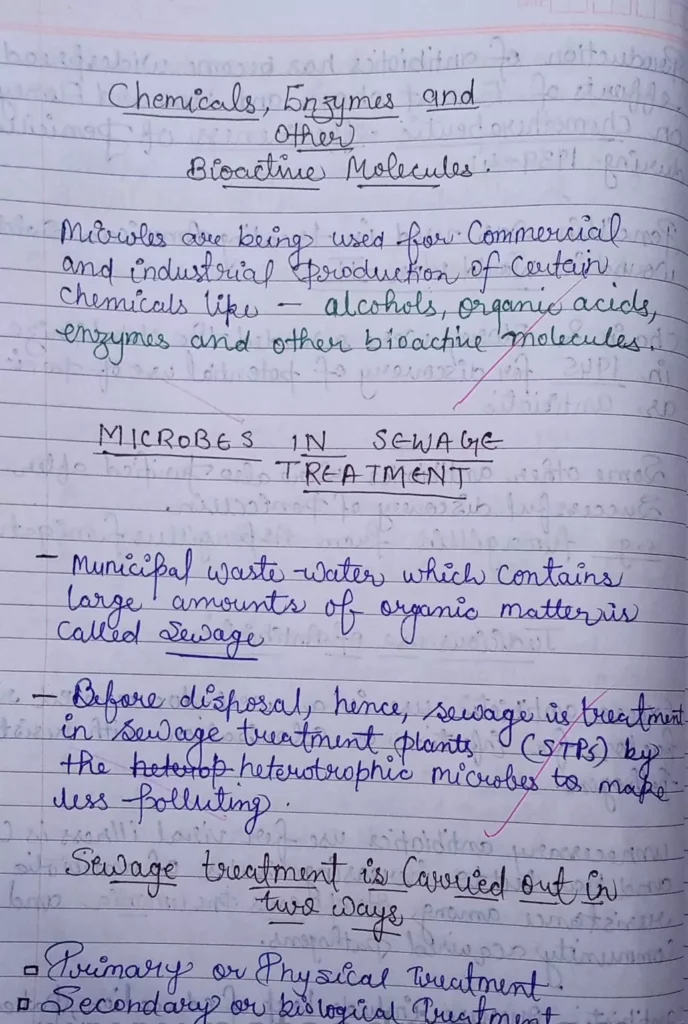 Chemicals, Enzymes and
Other
Bioactive Molecules.
Microbes are being used for Commercial
and industrial production of Certain
Chemicals like – alcohols, organic acids,
enzymes and other bioactive molecules.
MICROBES IN SEWAGE
TREATMENT
– Municipal waste-water which contains
large amounts of organic matter is
called Sewage
– Before disposal, hence, sewage is treatment
in sewage treatment plants (STPs) by
the heterop heterotrophic microbes to make
less polluting.
Sewage treatment is Carried out in
two ways
▫ Primary or Physical Treatment.
▫ Secondary or biological Treatment